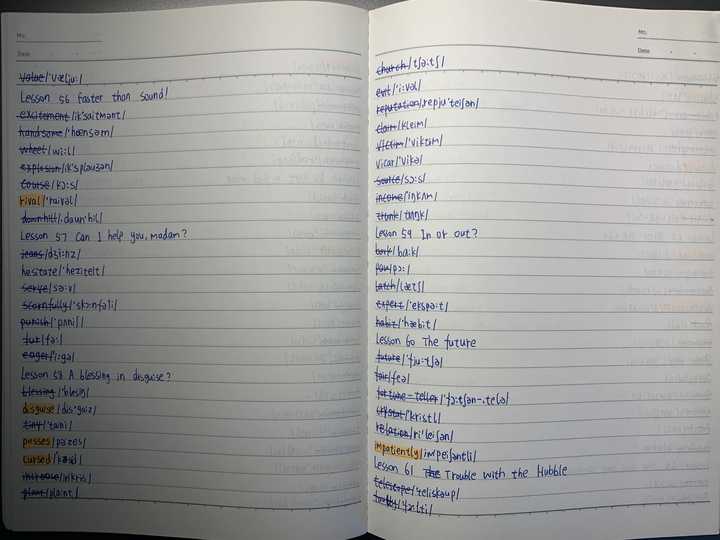 No.
Date
value /'vælju:/
Lesson 56 faster than sound!
excitement /ik'saitmənt/
handsome /'hænsəm/
wheel /wi:l/
explosion /ik'spləuʒən/
course /kɔ:s/
rival /'raivəl/
downhill /,daun'hil/
Lesson 57 Can I help you, madam?
jeans /dʒi:nz/
hesitate /'heziteit/
serve /sə:v/
scornfully /'skɔ:nfəli/
punish /'pʌniʃ/
fur /fə:/
eager /'i:gə/
Lesson 58 A blessing in disguise?
blessing /'blesiŋ/
disguise /dis'gaiz/
tiny /'taini/
posses /pəzes/
cursed /kə:sid/
increase /inkris/
plant /pla:nt/
No.
Date
church /tʃə:tʃ/
evil /'i:vəl/
reputation /repju'teiʃən/
claim /kleim/
victim /'viktim/
vicar /'vikə/
source /sɔ:s/
income /'inkʌm/
trunk /trʌŋk/
Lesson 59 In or out?
bark /ba:k/
paw /pɔ:/
latch /lætʃ/
expert /'ekspə:t/
habit /'hæbit/
Lesson 60 The future
future /'fju:tʃə/
fair /feə/
fortune-teller /'fɔ:tʃən-,telə/
crystal /'kristl/
relation /ri'leiʃən/
impatiently /im'peiʃəntli/
Lesson 61 The Trouble with the Hubble
telescope /'teliskəup/
faulty /'fɔ:lti/